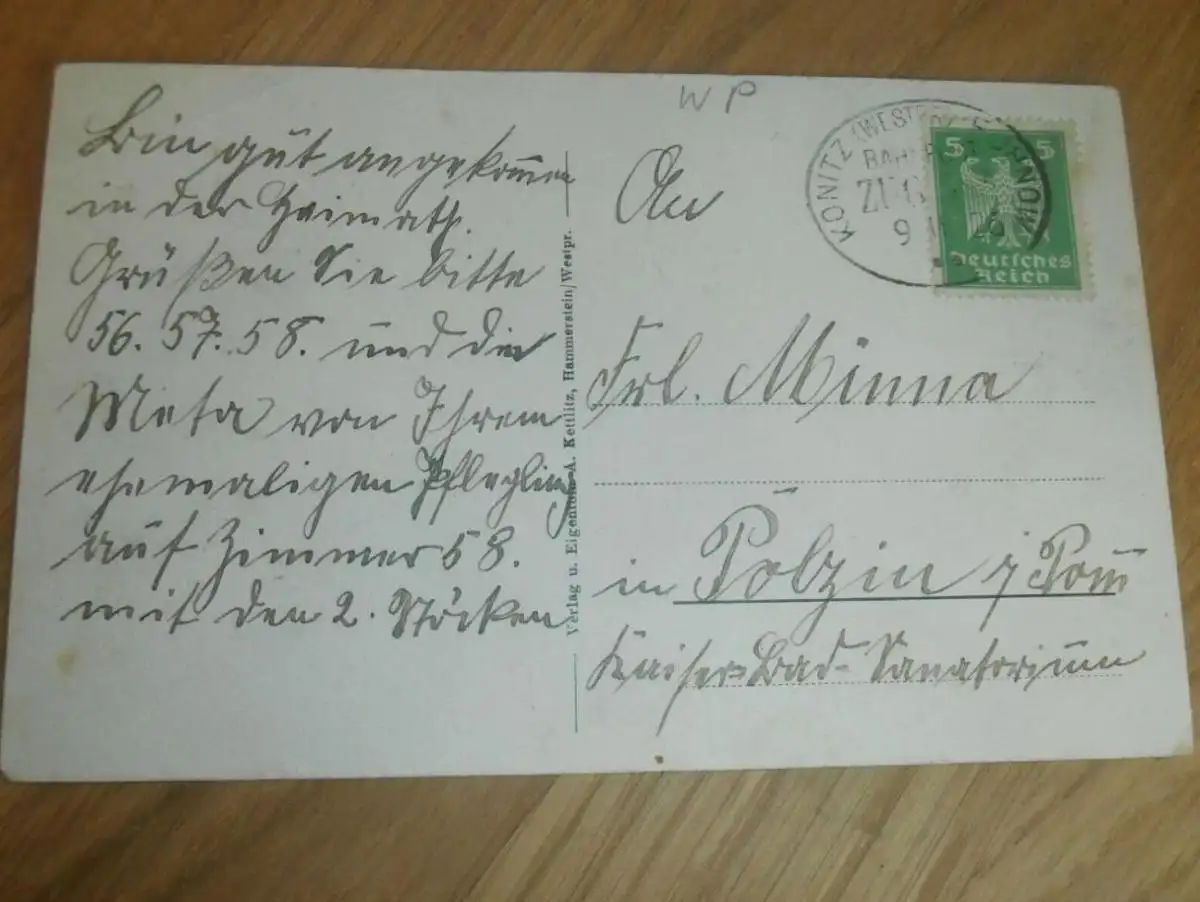 Bin gut angekom̅en
in der Heimath.
Grüßen Sie bitte
56. 57. 58. und die
Meta von Ihrem
ehemaligen Pflegling
auf Zimmer 58.
mit den 2. Stöcken
Verlag u. Eigentum A. Kettlitz, Hammerstein/Westpr.
W P
KONITZ (WESTPR)
BAHNPOST
ZUG
9 26
5 5
Deutsches
Reich
An
Frl. Minna
in Polzin i/Pom̅
Kaiser-Bad-Sanatorium